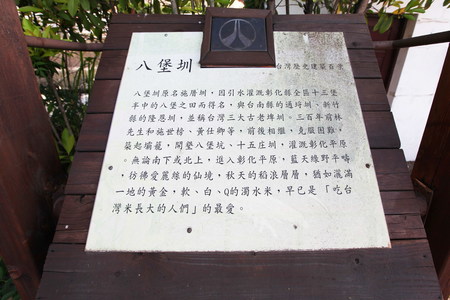 八堡圳
台灣歷史建築百景
八堡圳原名施厝圳，因引水灌溉彰化縣全區十三堡
半中的八堡之田而得名，與台南縣的通埒圳、新竹
縣的隆恩圳，並稱台灣三大古老埤圳。三百年前林
先生和施世榜、黃仕卿等，前後相繼，克服困難，
築起壩籠，開鑿八堡圳、十五庄圳，灌溉彰化平原
。無論南下或北上，進入彰化平原，藍天綠野平疇
，彷彿愛麗絲的仙境，秋天的稻浪層層，猶如灑滿
一地的黃金，軟、白、Q的濁水米，早已是「吃台
灣米長大的人們」的最愛。